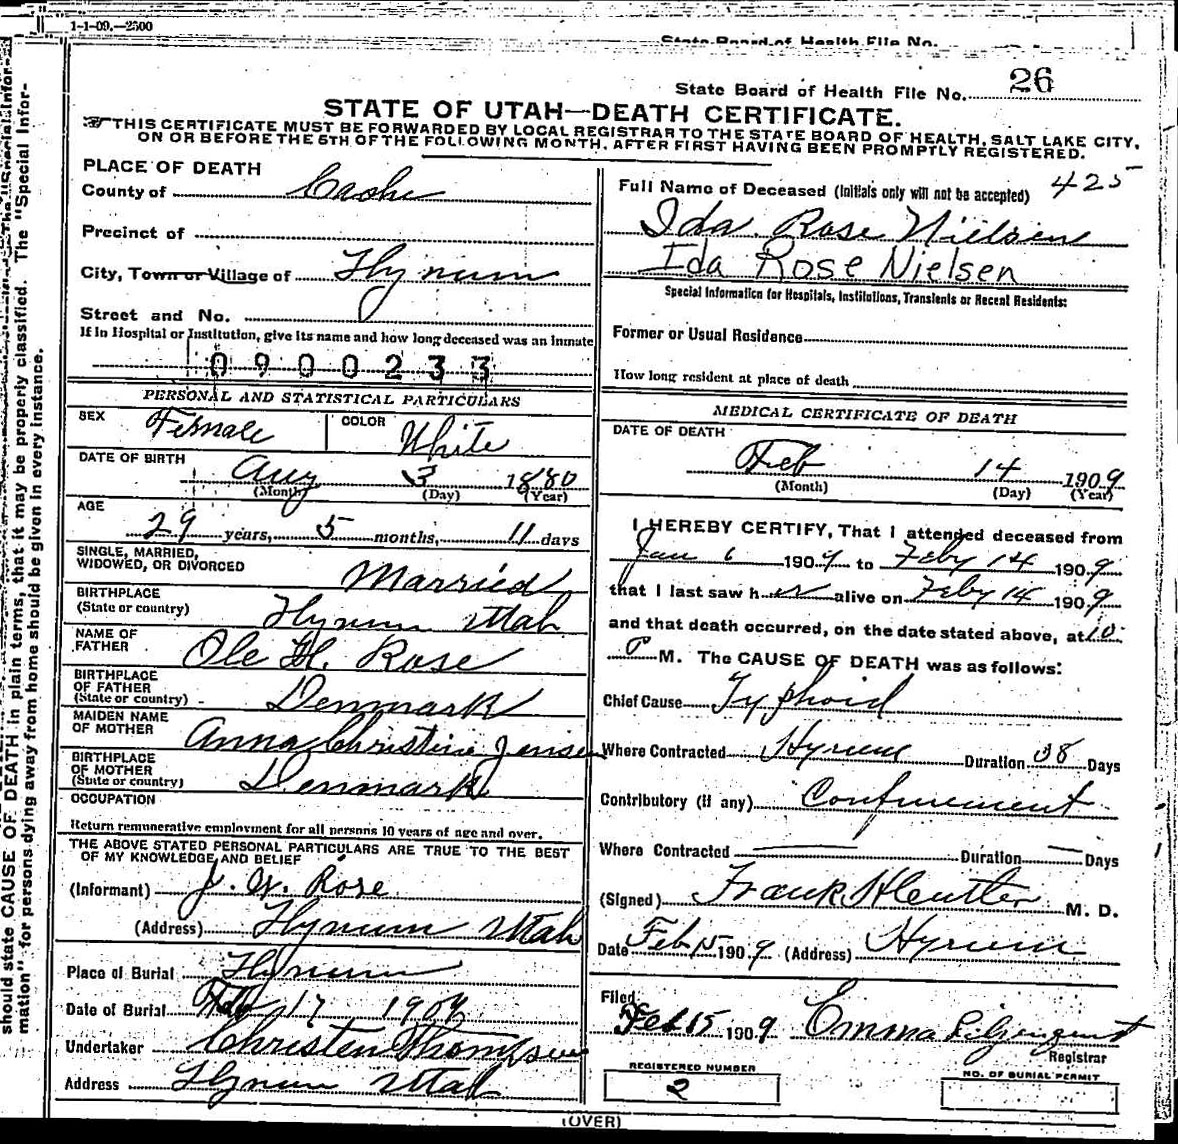 1-1-09.—2500
State Board of Health File No.
State Board of Health File No. 26
STATE OF UTAH—DEATH CERTIFICATE.
THIS CERTIFICATE MUST BE FORWARDED BY LOCAL REGISTRAR TO THE STATE BOARD OF HEALTH, SALT LAKE CITY,
ON OR BEFORE THE 5TH OF THE FOLLOWING MONTH, AFTER FIRST HAVING BEEN PROMPTLY REGISTERED.
PLACE OF DEATH
County of Cache
Precinct of
City, Town or Village of Hyrum
Street and No.
If in Hospital or Institution, give its name and how long deceased was an inmate
0900233
PERSONAL AND STATISTICAL PARTICULARS
SEX Female COLOR White
DATE OF BIRTH Aug 3 1880
(Month) (Day) (Year)
AGE
29 years, 5 months, 11 days
SINGLE, MARRIED,
WIDOWED, OR DIVORCED Married
BIRTHPLACE
(State or country) Hyrum Utah
NAME OF
FATHER Ole H. Rose
BIRTHPLACE
OF FATHER
(State or country) Denmark
MAIDEN NAME
OF MOTHER Anna Christine Jensen
BIRTHPLACE
OF MOTHER
(State or country) Denmark
OCCUPATION
Return remunerative employment for all persons 10 years of age and over.
THE ABOVE STATED PERSONAL PARTICULARS ARE TRUE TO THE BEST
OF MY KNOWLEDGE AND BELIEF
(Informant) J. W. Rose
(Address) Hyrum Utah
Place of Burial Hyrum
Date of Burial Feb 17 1909
Undertaker Christen Thompson
Address Hyrum Utah
Full Name of Deceased (Initials only will not be accepted) 425
Ida Rose Nielsen
Ida Rose Nielsen
Special Information for Hospitals, Institutions, Transients or Recent Residents:
Former or Usual Residence
How long resident at place of death
MEDICAL CERTIFICATE OF DEATH
DATE OF DEATH
Feb 14 1909
(Month) (Day) (Year)
I HEREBY CERTIFY, That I attended deceased from
Jan 6 1909 to Feby 14 1909
that I last saw her alive on Feby 14 1909
and that death occurred, on the date stated above, at 10
P M. The CAUSE OF DEATH was as follows:
Chief Cause Typhoid
Where Contracted Hyrum Duration 38 Days
Contributory (if any) Confinement
Where Contracted Duration Days
(Signed) Frank M. D.
Date Feb 15 1909 (Address) Hyrum
Filed
Feb 15 1909 Emma
Registrar
REGISTERED NUMBER
2
NO. OF BURIAL PERMIT
(OVER)
should state CAUSE OF DEATH in plain terms, that it may be properly classified. The "Special Infor-
mation" for persons dying away from home should be given in every instance.